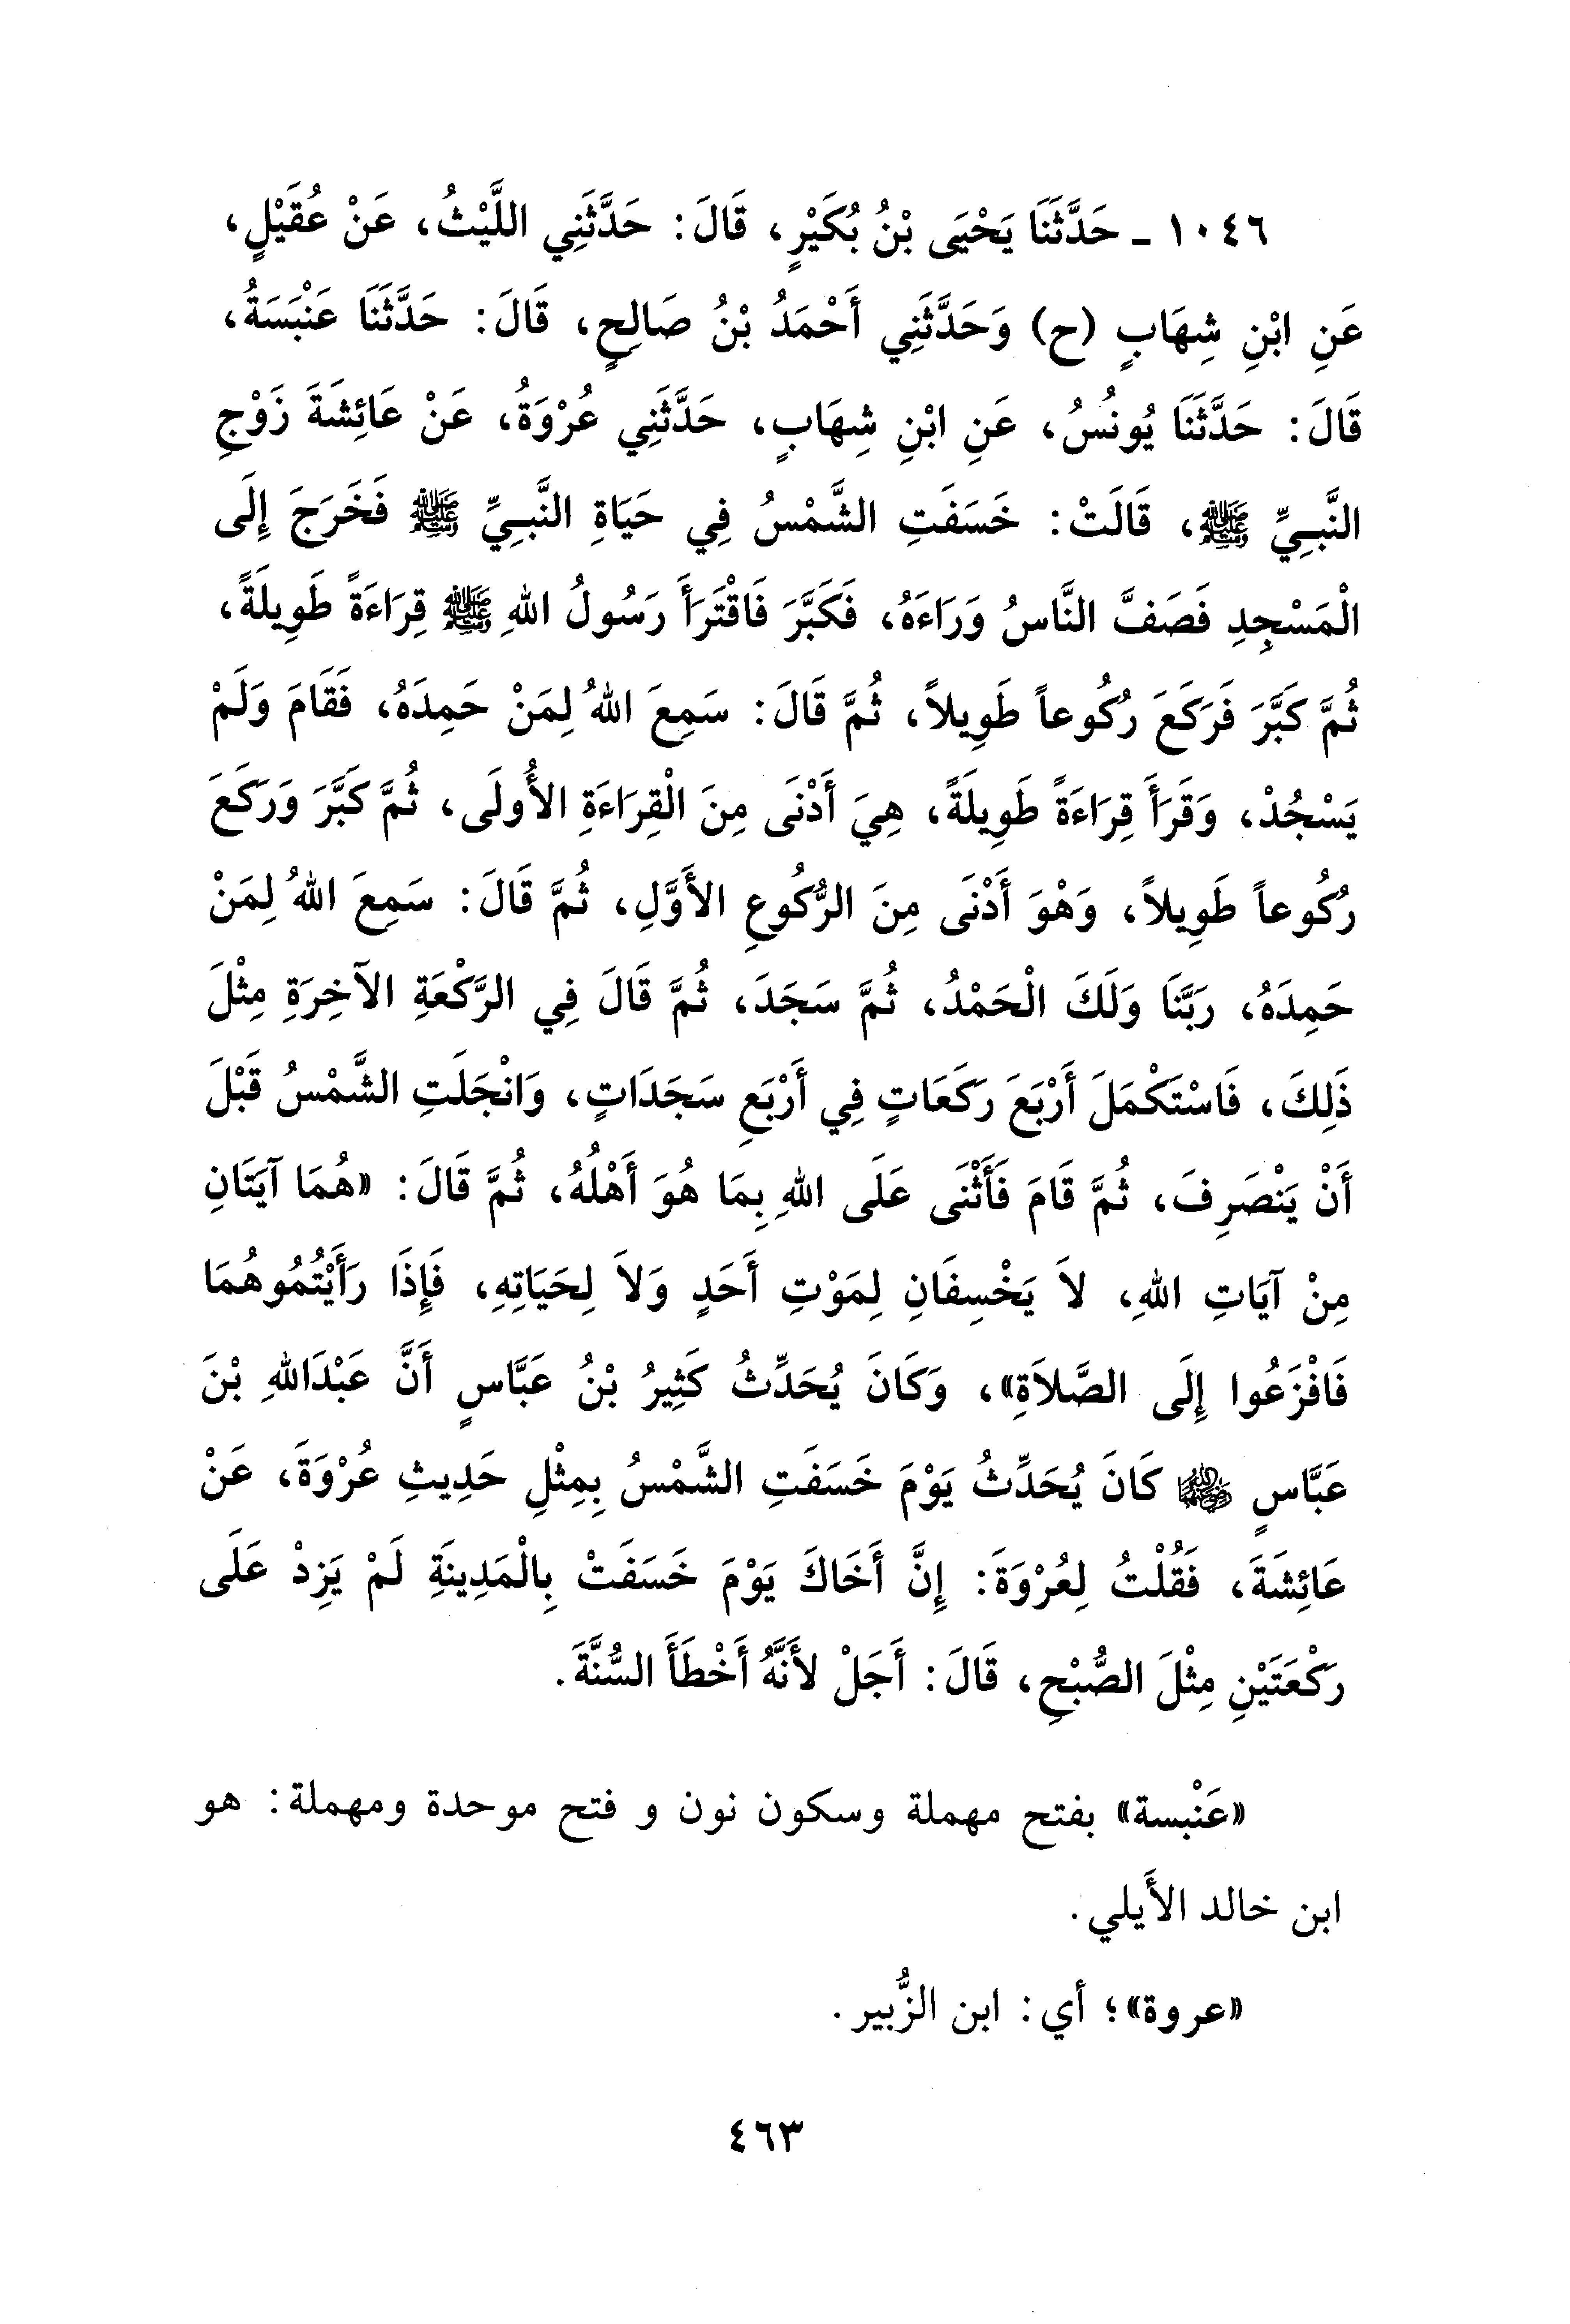 ١٠٤٦ ـ حَدَّثَنَا يَحْيَى بْنُ بُكَيْرٍ، قَالَ: حَدَّثَنِي اللَّيْثُ، عَنْ عُقَيْلٍ،
عَنِ ابْنِ شِهَابٍ (ح) وَحَدَّثَنِي أَحْمَدُ بْنُ صَالِحٍ، قَالَ: حَدَّثَنَا عَنْبَسَةُ،
قَالَ: حَدَّثَنَا يُونُسُ، عَنِ ابْنِ شِهَابٍ، حَدَّثَنِي عُرْوَةُ، عَنْ عَائِشَةَ زَوْجِ
النَّبِيِّ ﷺ، قَالَتْ: خَسَفَتِ الشَّمْسُ فِي حَيَاةِ النَّبِيِّ ﷺ فَخَرَجَ إِلَى
الْمَسْجِدِ فَصَفَّ النَّاسُ وَرَاءَهُ، فَكَبَّرَ فَاقْتَرَأَ رَسُولُ اللهِ ﷺ قِرَاءَةً طَوِيلَةً،
ثُمَّ كَبَّرَ فَرَكَعَ رُكُوعاً طَوِيلاً، ثُمَّ قَالَ: سَمِعَ اللهُ لِمَنْ حَمِدَهُ، فَقَامَ وَلَمْ
يَسْجُدْ، وَقَرَأَ قِرَاءَةً طَوِيلَةً، هِيَ أَدْنَى مِنَ الْقِرَاءَةِ الأُولَى، ثُمَّ كَبَّرَ وَرَكَعَ
رُكُوعاً طَوِيلاً، وَهْوَ أَدْنَى مِنَ الرُّكُوعِ الأَوَّلِ، ثُمَّ قَالَ: سَمِعَ اللهُ لِمَنْ
حَمِدَهُ، رَبَّنَا وَلَكَ الْحَمْدُ، ثُمَّ سَجَدَ، ثُمَّ قَالَ فِي الرَّكْعَةِ الآخِرَةِ مِثْلَ
ذَلِكَ، فَاسْتَكْمَلَ أَرْبَعَ رَكَعَاتٍ فِي أَرْبَعِ سَجَدَاتٍ، وَانْجَلَتِ الشَّمْسُ قَبْلَ
أَنْ يَنْصَرِفَ، ثُمَّ قَامَ فَأَثْنَى عَلَى اللهِ بِمَا هُوَ أَهْلُهُ، ثُمَّ قَالَ: «هُمَا آيَتَانِ
مِنْ آيَاتِ اللهِ، لاَ يَخْسِفَانِ لِمَوْتِ أَحَدٍ وَلاَ لِحَيَاتِهِ، فَإِذَا رَأَيْتُمُوهُمَا
فَافْزَعُوا إِلَى الصَّلاَةِ»، وَكَانَ يُحَدِّثُ كَثِيرُ بْنُ عَبَّاسٍ أَنَّ عَبْدَاللهِ بْنَ
عَبَّاسٍ رضي الله عنهما كَانَ يُحَدِّثُ يَوْمَ خَسَفَتِ الشَّمْسُ بِمِثْلِ حَدِيثِ عُرْوَةَ، عَنْ
عَائِشَةَ، فَقُلْتُ لِعُرْوَةَ: إِنَّ أَخَاكَ يَوْمَ خَسَفَتْ بِالْمَدِينَةِ لَمْ يَزِدْ عَلَى
رَكْعَتَيْنِ مِثْلَ الصُّبْحِ، قَالَ: أَجَلْ لأَنَّهُ أَخْطَأَ السُّنَّةَ.
«عَنْبسة» بفتح مهملة وسكون نون و فتح موحدة ومهملة: هو
ابن خالد الأَيلي.
«عروة»؛ أي: ابن الزُّبير.
٤٦٣